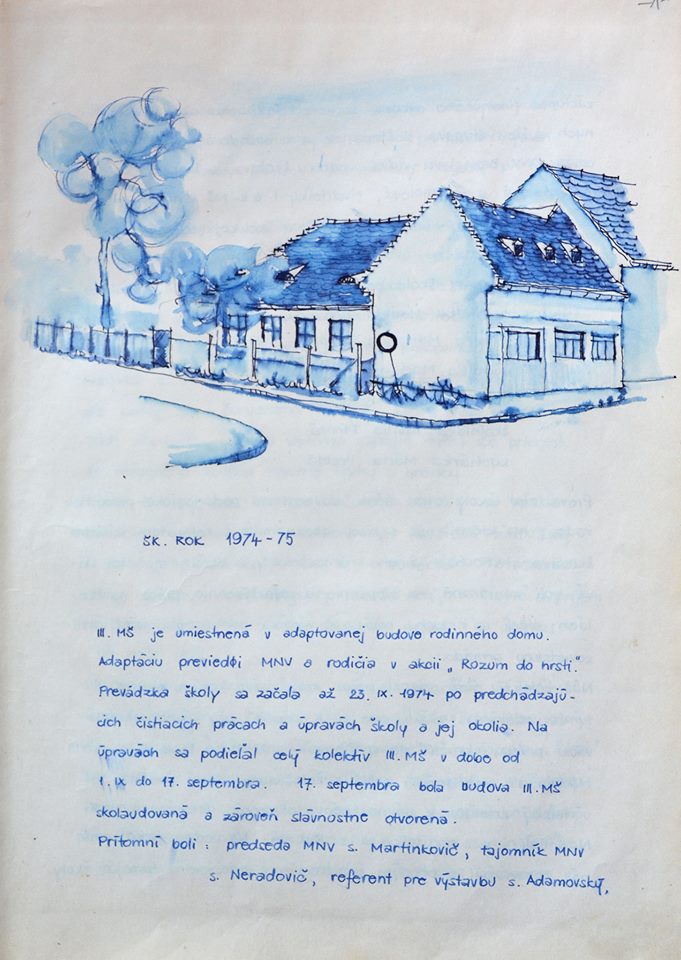 ŠK. ROK 1974-75
III. MŠ je umiestnená v adaptovanej budove rodinného domu.
Adaptáciu previedli MNV a rodičia v akcii „Rozum do hrsti."
Prevádzka školy sa začala až 23. IX. 1974 po predchádzajú-
cich čistiacich prácach a úpravách školy a jej okolia. Na
úpravách sa podieľal celý kolektív III. MŠ v dobe od
1. IX do 17. septembra. 17. septembra bola budova III. MŠ
skolaudovaná a zároveň slávnostne otvorená.
Prítomní boli : predseda MNV s. Martinkovič, tajomník MNV
s. Neradovič, referent pre výstavbu s. Adamovský,